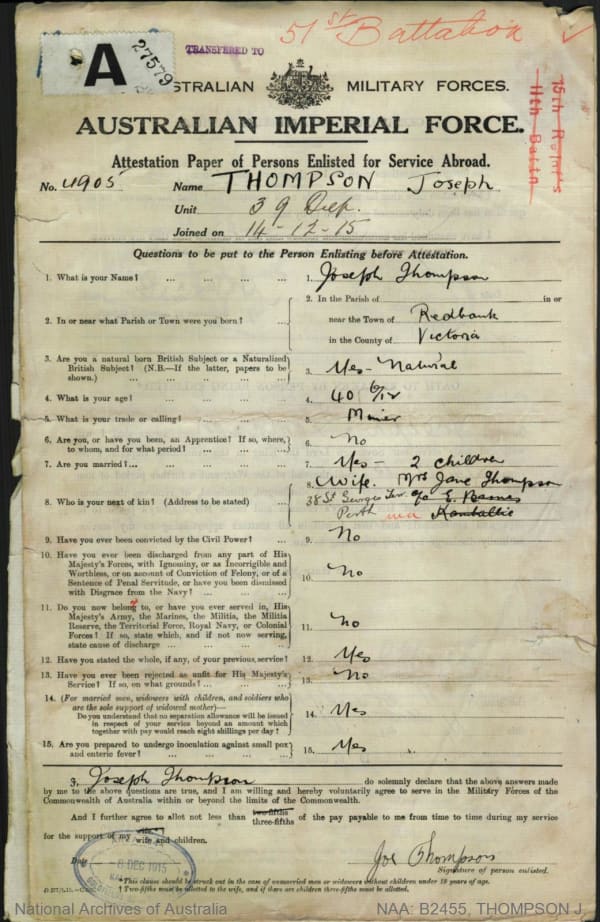 A
27579
TRANSFERED TO
51st Battalion
AUSTRALIAN MILITARY FORCES.
AUSTRALIAN IMPERIAL FORCE.
15th Reinfts
11th Battn
Attestation Paper of Persons Enlisted for Service Abroad.
No. 4905 Name THOMPSON Joseph
Unit 39 Dep.
Joined on 14-12-15
Questions to be put to the Person Enlisting before Attestation.
1. What is your Name? ... ... ... ... 1. Joseph Thompson
2. In or near what Parish or Town were you born? ... ... 2. In the Parish of in or
near the Town of Redbank
in the County of Victoria
3. Are you a natural born British Subject or a Naturalized
British Subject? (N.B.—If the latter, papers to be
shown.) ... ... ... 3. Yes - Natural
4. What is your age? ... ... ... ... 4. 40 6/12
5. What is your trade or calling? ... ... ... 5. Miner
6. Are you, or have you been, an Apprentice? If so, where,
to whom, and for what period? ... ... 6. No
7. Are you married? ... ... ... ... 7. Yes - 2 children
8. Who is your next of kin? (Address to be stated) ... 8. Wife. Mrs Jane Thompson
38 St Georges Terr. c/o E. Barnes
Perth WA Kanballie
9. Have you ever been convicted by the Civil Power? ... 9. No
10. Have you ever been discharged from any part of His
Majesty's Forces, with Ignominy, or as Incorrigible and
Worthless, or on account of Conviction of Felony, or of a
Sentence of Penal Servitude, or have you been dismissed
with Disgrace from the Navy? ... ... 10. No
11. Do you now belong to, or have you ever served in, His
Majesty's Army, the Marines, the Militia, the Militia
Reserve, the Territorial Force, Royal Navy, or Colonial
Forces? If so, state which, and if not now serving,
state cause of discharge ... ... ... 11. No
12. Have you stated the whole, if any, of your previous service? 12. Yes
13. Have you ever been rejected as unfit for His Majesty's
Service? If so, on what grounds? ... ... 13. No
14. (For married men, widowers with children, and soldiers who
are the sole support of widowed mother)—
Do you understand that no separation allowance will be issued
in respect of your service beyond an amount which
together with pay would reach eight shillings per day? 14. Yes
15. Are you prepared to undergo inoculation against small pox
and enteric fever? ... ... ... ... 15. Yes
I, Joseph Thompson do solemnly declare that the above answers made
by me to the above questions are true, and I am willing and hereby voluntarily agree to serve in the Military Forces of the
Commonwealth of Australia within or beyond the limits of the Commonwealth.
And I further agree to allot not less than two-fifths three-fifths of the pay payable to me from time to time during my service
for the support of my wife wife and children.
Date 8 DEC 1915
Joe Thompson
Signature of person enlisted.
*This clause should be struck out in the case of unmarried men or widowers without children under 18 years of age.
†Two-fifths must be allotted to the wife, and if there are children three-fifths must be allotted.
National Archives of Australia NAA: B2455, THOMPSON J